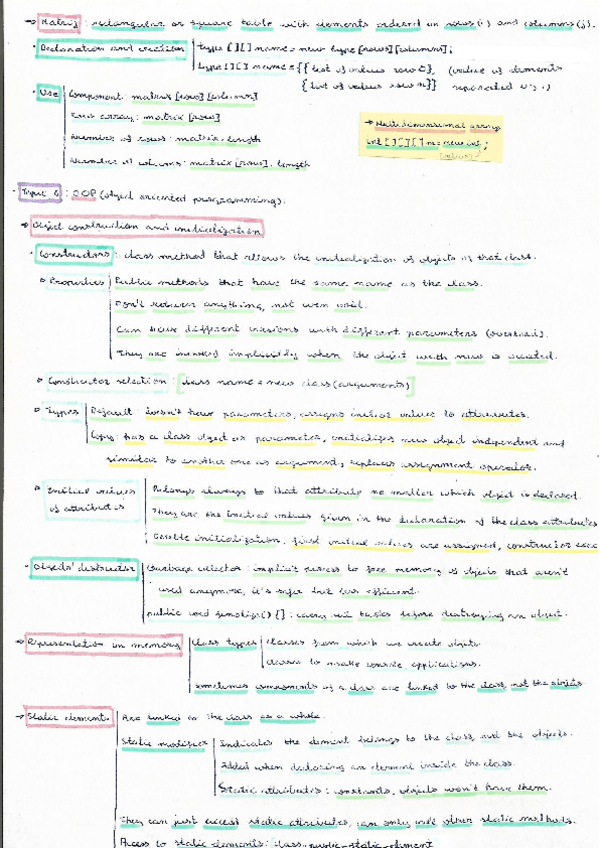 → Matrix: rectangular or square table with elements ordered in rows(i) and columns(j).
· Declaration and creation type [][] name = new type [rows][columns];
type [][] name = {{list of values row 0}, (value of elements
{list of values row n}} separated by ,)
· Use Component: matrix [row][column]
Row array: matrix [row]
Number of rows: matrix.length
Number of columns: matrix [row].length
→ Multidimensional array
int [][][] m = new int ;
· Input 4: OOP (object oriented programming).
→ Object construction and initialization
· Constructors: class method that allows the initialization of objects of that class.
Properties Public methods that have the same name as the class.
Don't return anything, not even void.
Can have different versions with different parameters (overload).
They are invoked implicitly when the object with new is created.
Constructor selection: [class name = new class (arguments)]
Types Default: doesn't have parameters, assigns initial values to attributes.
Copy: has a class object as parameter, initializes new object independent and
similar to another one as argument, replaces assignment operator.
Initial values of attributes Belongs always to that attribute no matter which object is declared.
They are the initial values given in the declaration of the class attributes
Double initialization, first initial values are assigned, constructor
· Objects' destructor Garbage collector: implicit process to free memory of objects that aren't
used anymore, it's safe but less efficient.
public void finalize() {}: carry out tasks before destroying an object.
→ Representation in memory Class types classes from which we create objects
classes to make console applications.
Sometimes components of a class are linked to the class, not the objects
→ Static elements Are linked to the class as a whole.
Static modifier Indicates the element belongs to the class, not the objects.
Added when declaring an element inside the class.
Static attributes: constants, objects won't have them.
They can just access static attributes, can only call other static methods.
Access to static elements: class.public_static_element